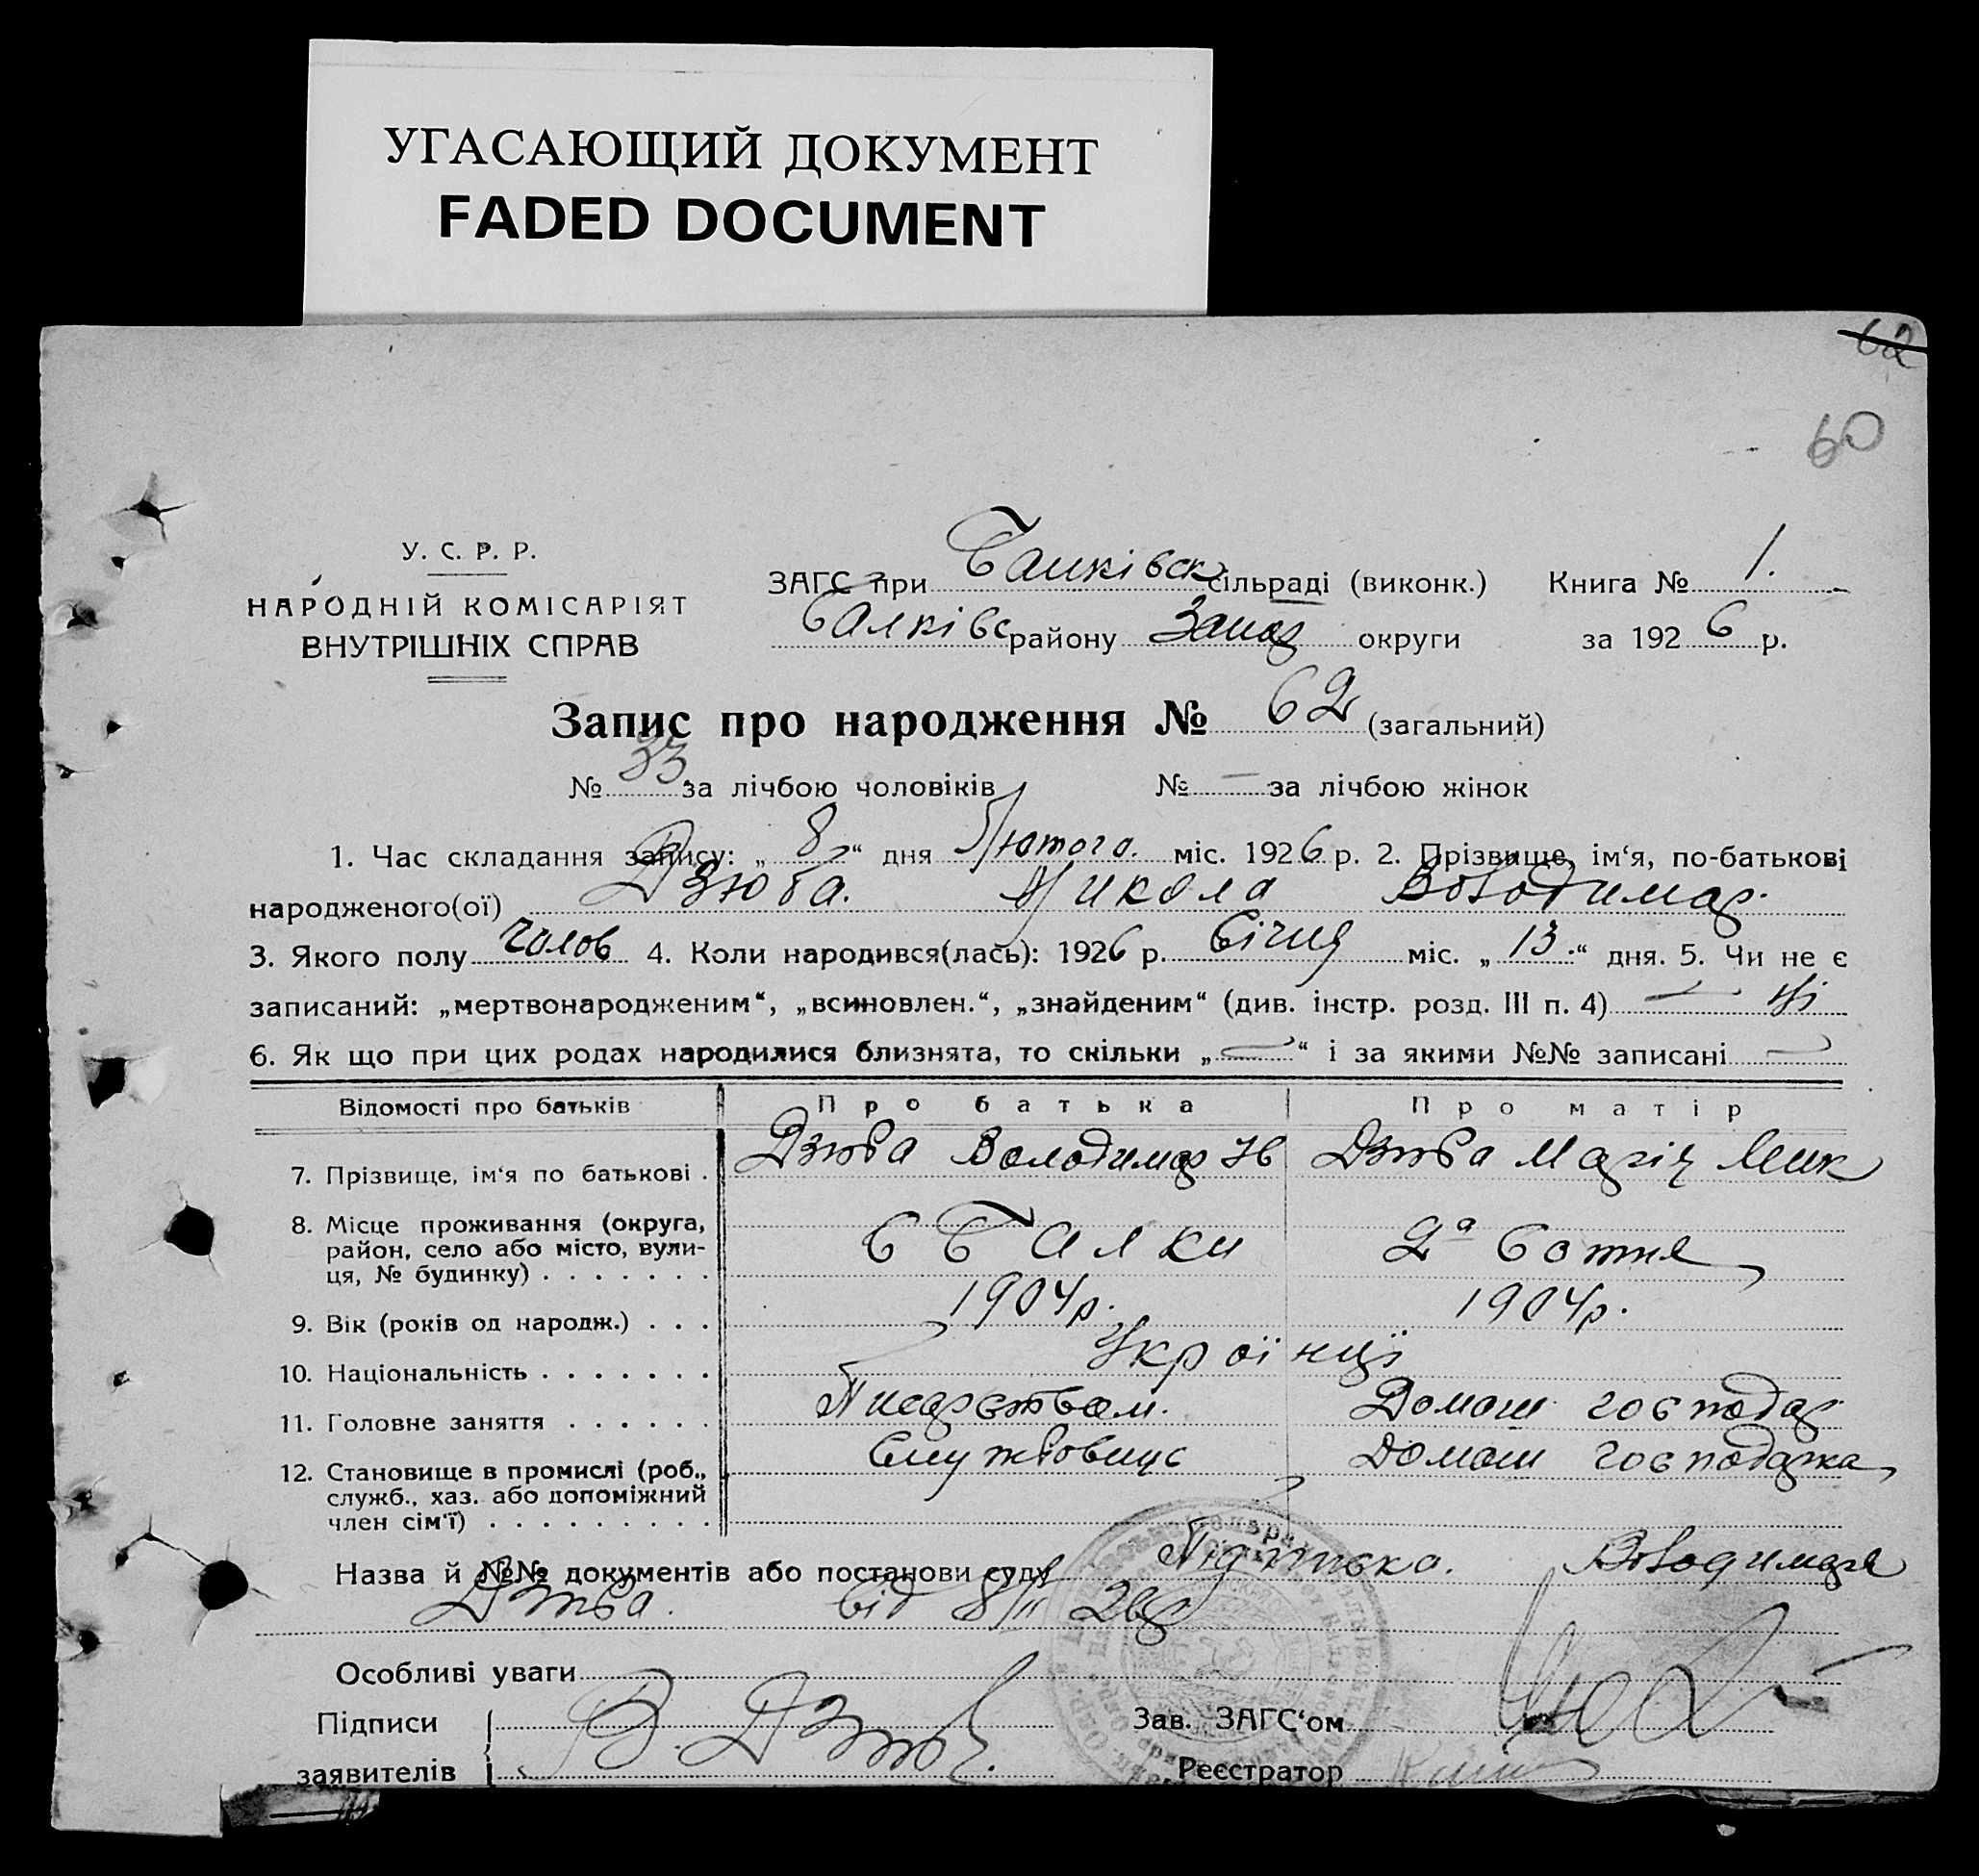 УГАСАЮЩИЙ ДОКУМЕНТ
FADED DOCUMENT
62
60
У. С. Р. Р.
НАРОДНІЙ КОМІСАРІЯТ
ВНУТРІШНІХ СПРАВ
ЗАГС при Балківск сільраді (виконк.) Книга № 1.
Балківс району Запор округи за 1926 р.
Запис про народження № 62 (загальний)
№ 33 за лічбою чоловіків № — за лічбою жінок
1. Час складання запису: „8“ дня Лютого. міс. 1926 р. 2. Прізвище, ім‘я, по-батькові
народженого(ої) Дзюба. Микола Володимир.
3. Якого полу чолов 4. Коли народився(лась): 1926 р. Січня міс. „13.“ дня. 5. Чи не є
записаний: „мертвонародженим“, „всиновлен.“, „знайденим“ (див. інстр. розд. III п. 4) — Ні
6. Як що при цих родах народилися близнята, то скільки „—“ і за якими №№ записані —
Відомості про батьків Про батька Про матір
7. Прізвище, ім‘я по батькові . Дзюба Володимир Ів Дзюба Марія Мик
8. Місце проживання (округа, район, село або місто, вулиця, № будинку) . . . . . . . С Балки 2а Сотня
9. Вік (років од народж.) . . . 1904р. 1904р.
10. Національність . . . . . . . Українці
11. Головне заняття . . . . . . Писарством. Домаш господар
12. Становище в промислі (роб., служб., хаз. або допоміжний член сім‘ї) . . . . . . . . . Службовиць Домаш господарка
Назва й №№ документів або постанови суду Підписка. Володимира
Дзюба. від 8/II 26р
Особливі уваги
Підписи заявителів В. Дзюба.
Зав. ЗАГС‘ом
Реєстратор